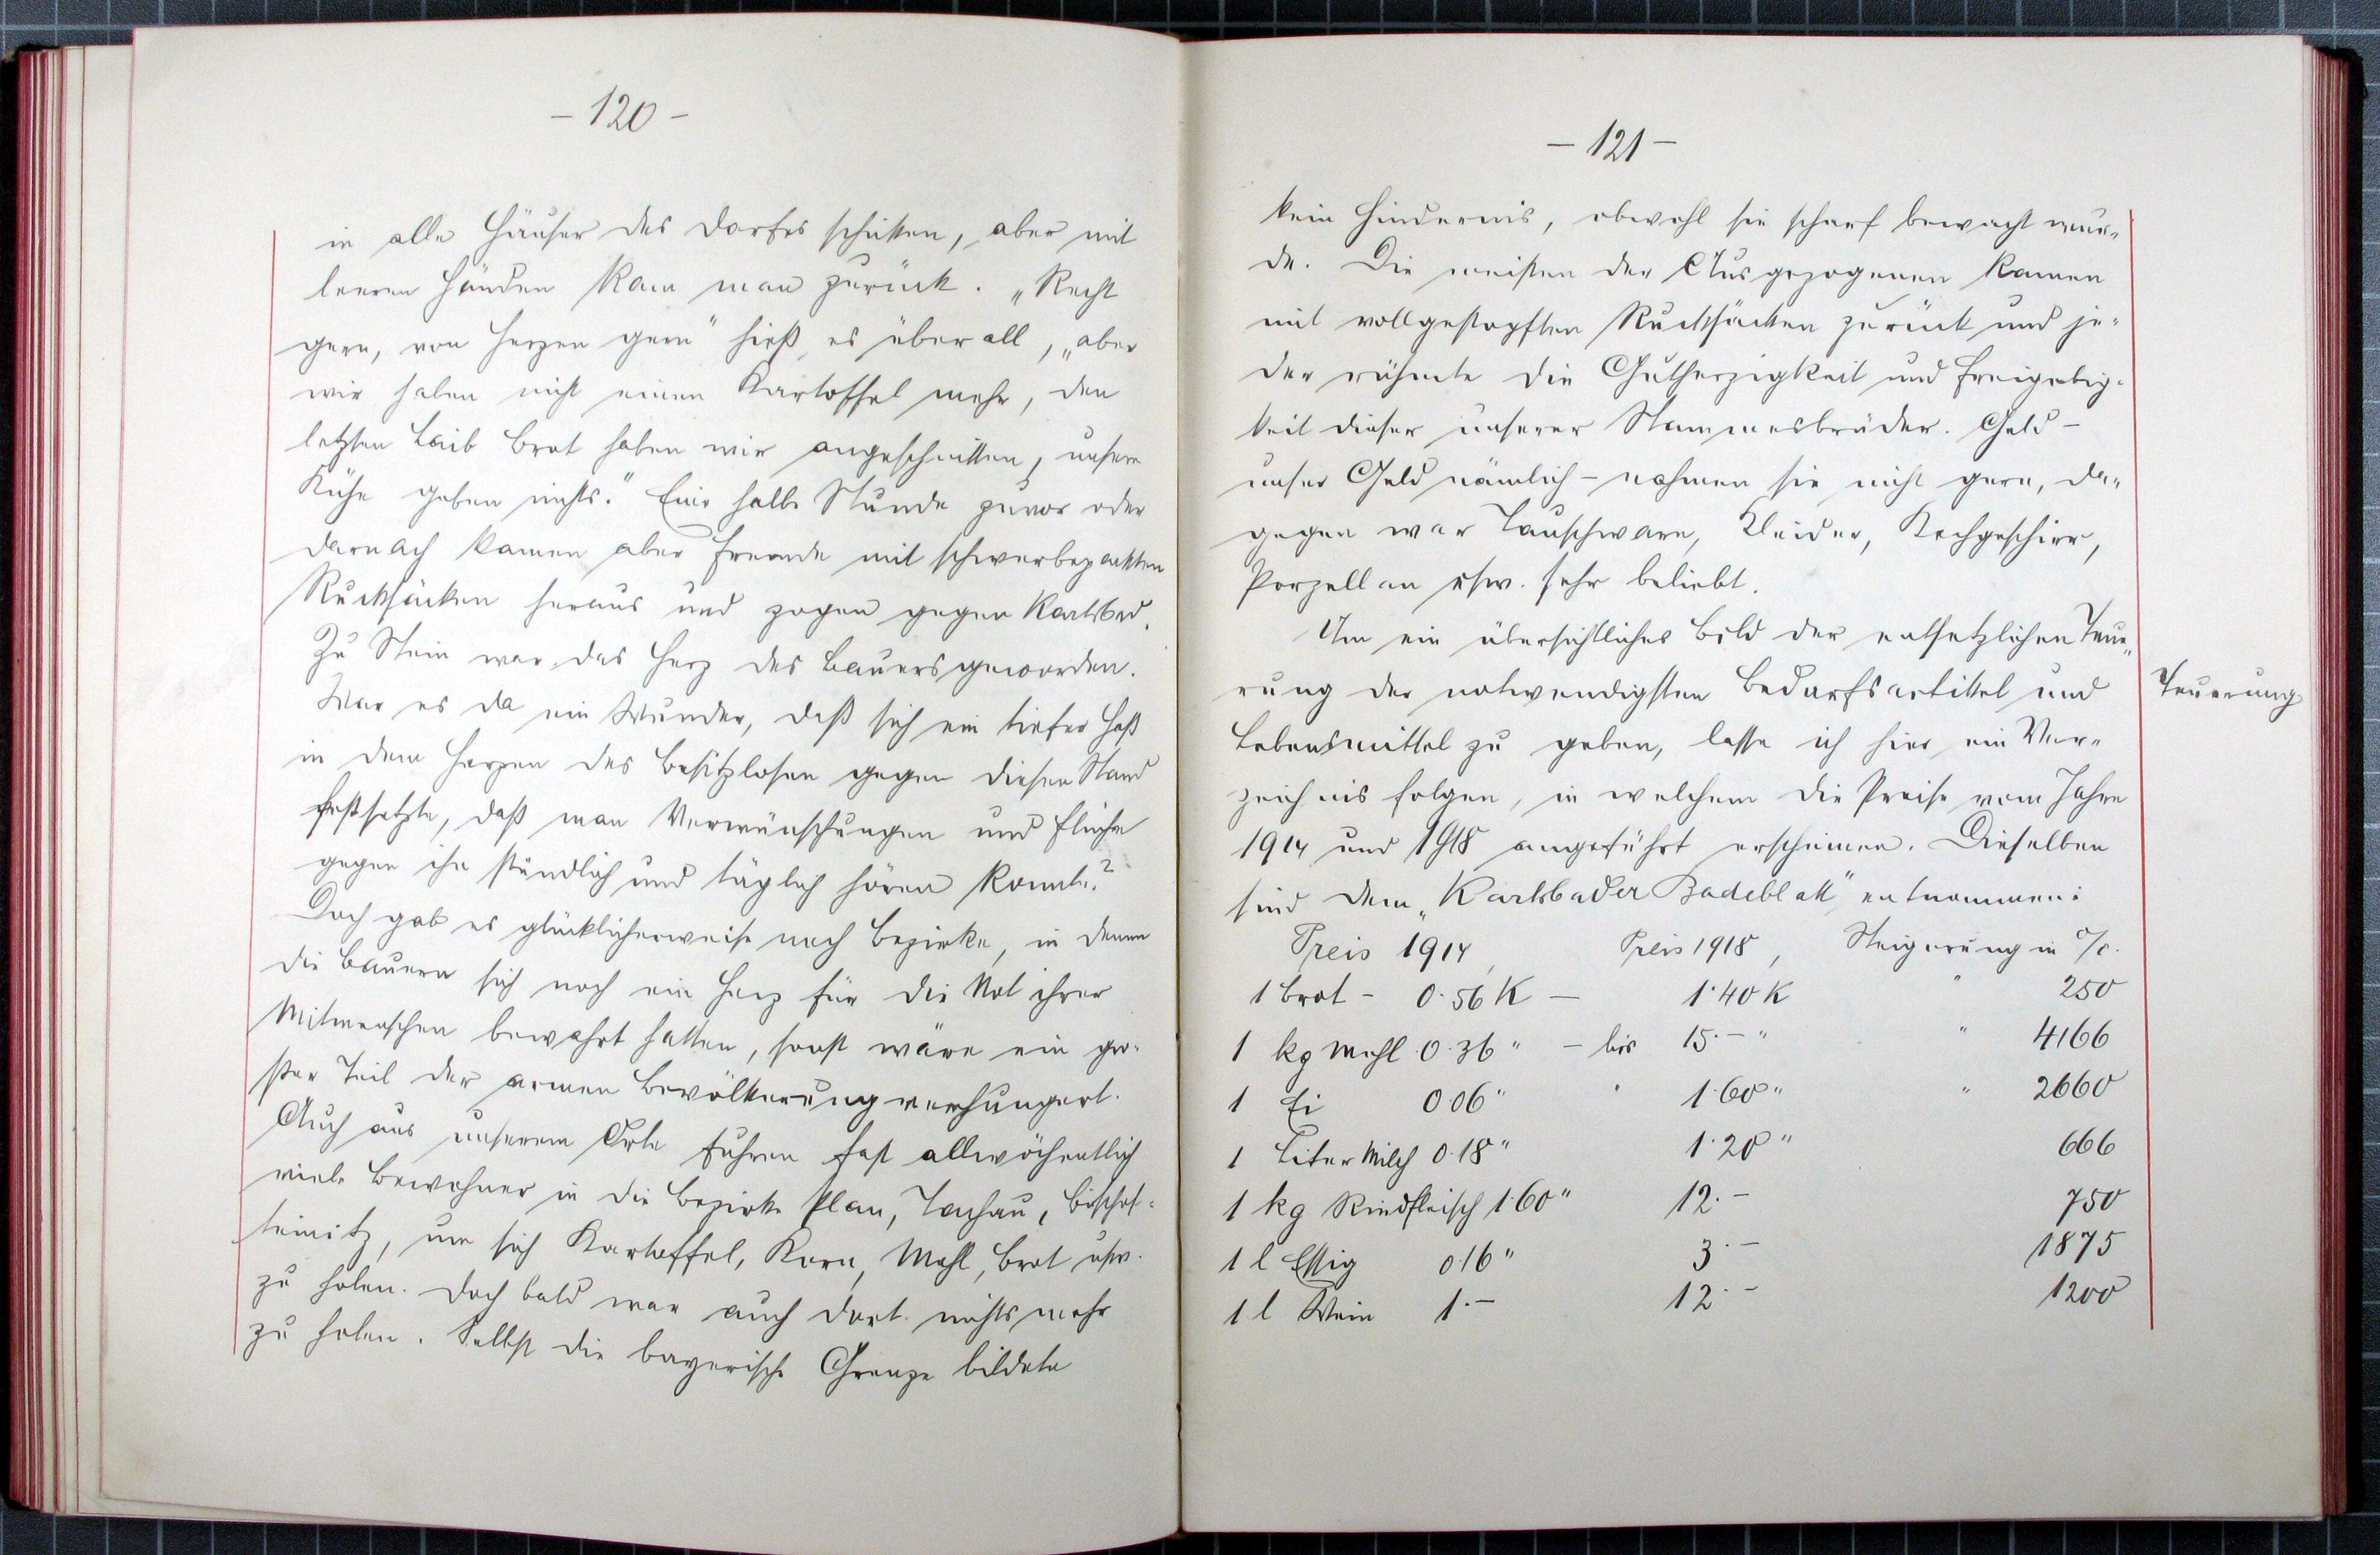 - 120 -
in alle Häuser des Dorfes schicken, aber mit
leeren Händen kam man zurück. „Recht
gern, von Herzen gern" hieß es überall, „aber
wir haben nicht einen Kartoffel mehr, den
letzten Laib Brot haben wir angeschnitten, unsere
Kühe geben nichts." Eine halbe Stunde zuvor oder
darnach kamen aber Fremde mit schwerbepackten
Rucksäcken heraus und zogen gegen Karlsbad.
Zu Stein war das Herz des Bauers geworden.
War es da ein Wunder, daß sich ein tiefer Haß
in dem Herzen des Besitzlosen gegen diesen Stand
festsetzte, daß man Verwünschungen und Flüche
gegen ihn stündlich und täglich hören konnte?
Doch gab es glücklicherweise noch Bezirke, in denen
die Bauern sich noch ein Herz für die Not ihrer
Mitmenschen bewahrt hatten, sonst wäre ein gro-
ßer Teil der armen Bevölkerung verhungert.
Auch aus unserem Orte fuhren fast allwöchentlich
viele Bewohner in die Bezirke Plan, Tachau, Bischof-
teinitz, um sich Kartoffel, Korn, Mehl, Brot usw.
zu holen. Doch bald war auch dort nichts mehr
zu holen. Selbst die bayerische Grenze bildete
- 121 -
kein Hindernis, obwohl sie scharf bewacht wur-
de. Die meisten der Ausgezogenen kamen
mit vollgestopften Rucksäcken zurück und je-
der rühmte die Gutherzigkeit und Freigebig-
keit dieser unserer Stammesbrüder. Geld -
unser Geld nämlich - nahmen sie nicht gern, da-
gegen war Tauschware, Kleider, Kochgeschirr,
Porzellan usw. sehr beliebt.
Um ein übersichtliches Bild der entsetzlichen Teue-
rung der notwendigsten Bedarfsartikel und
Teuerung
Lebensmittel zu geben, lasse ich hier ein Ver-
zeichnis folgen, in welchem die Preise vom Jahre
1914 und 1918 angeführt erscheinen. Dieselben
sind dem „Karlsbader Badeblatt" entnommen:
Preis 1914, Preis 1918, Steigerung in %.
1 Brot - 0·56 K - 1·40 K " 250
1 kg Mehl 0·36 " - bis 15·- " " 4166
1 Ei 0·06 " " 1·60 " " 2660
1 Liter Milch 0·18 " 1·20 " 666
1 kg Rindfleisch 1·60 " 12·- 750
1 l Essig 0·16 " 3·- 1875
1 l Wein 1·- 12·- 1200